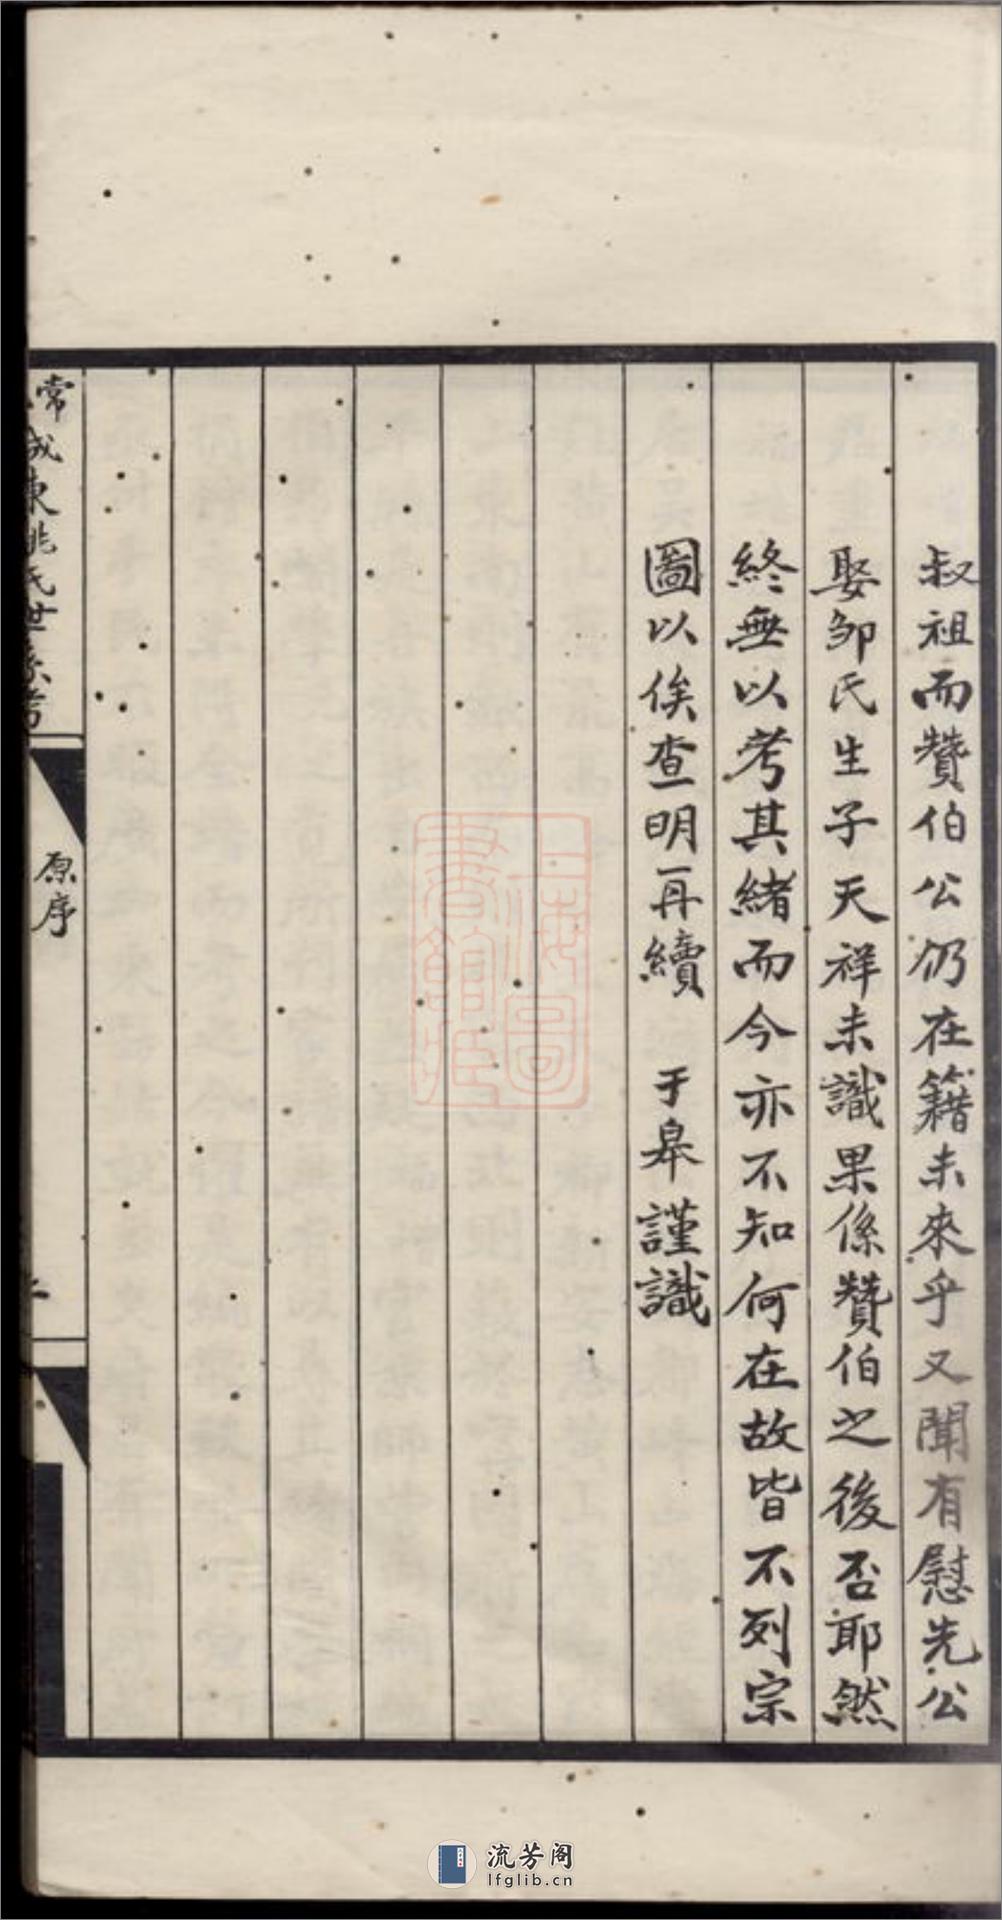 叔祖而贊伯公仍在籍未來乎又聞有慰先公
娶邹氏生子天祥未識果係贊伯之後否耶然
終無以考其緒而今亦不知何在故皆不列宗
圖以俟查明再續　于皋謹識
常城東姚氏世系考
原序
上海圖書館藏
流芳阁
lfglib.cn